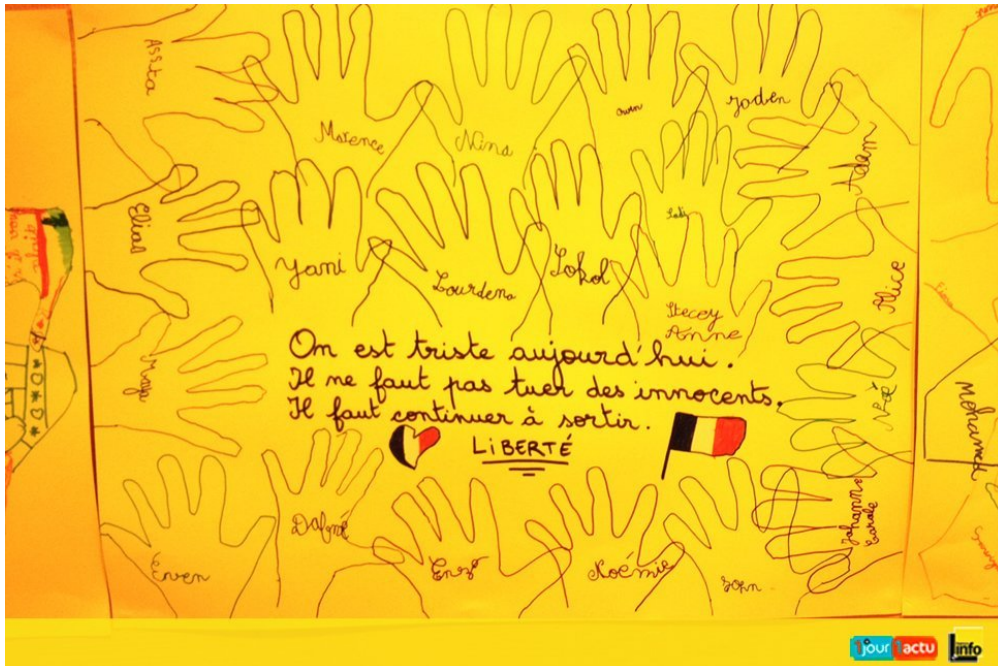 Assta
Maxence
Nina
Owen
Joden
Adam
Elias
Yani
Lourdena
Sokol
Alice
Stecey
Anne
Maya
On est triste aujourd'hui.
Il ne faut pas tuer des innocents.
Il faut continuer à sortir.
LiBERTÉ
Mohamed
Johanna
Carole
Erven
Dafné
Enzo
Noémie
John
1jour1actu
info